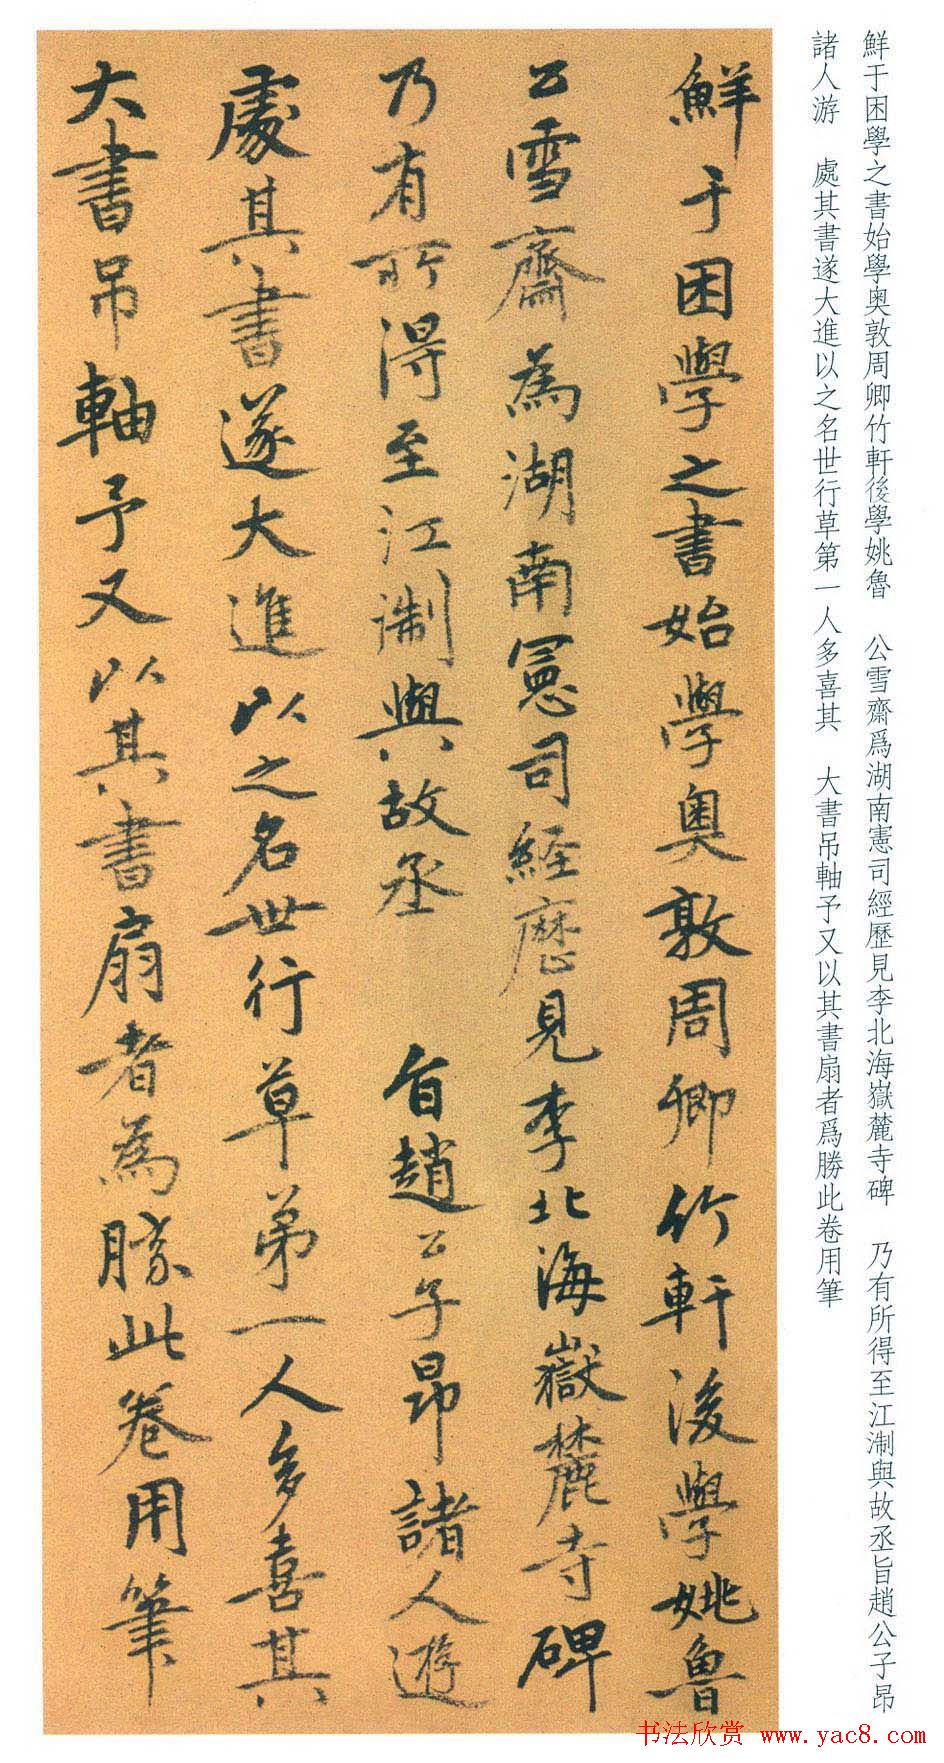 鮮于困學之書始學奧敦周卿竹軒後學姚魯　公雪齋爲湖南憲司經歷見李北海嶽麓寺碑　乃有所得至江淛與故丞旨趙公子昂
諸人游　處其書遂大進以之名世行草第一人多喜其　大書吊軸予又以其書扇者爲勝此卷用筆
鮮于困學之書始學奧敦周卿竹軒後學姚魯
公雪齋為湖南憲司經歷見李北海嶽麓寺碑
乃有所得至江淛與故丞　旨趙公子昂諸人遊
處其書遂大進以之名世行草第一人多喜其
大書吊軸予又以其書扇者為勝此卷用筆
书法欣赏 www.yac8.com